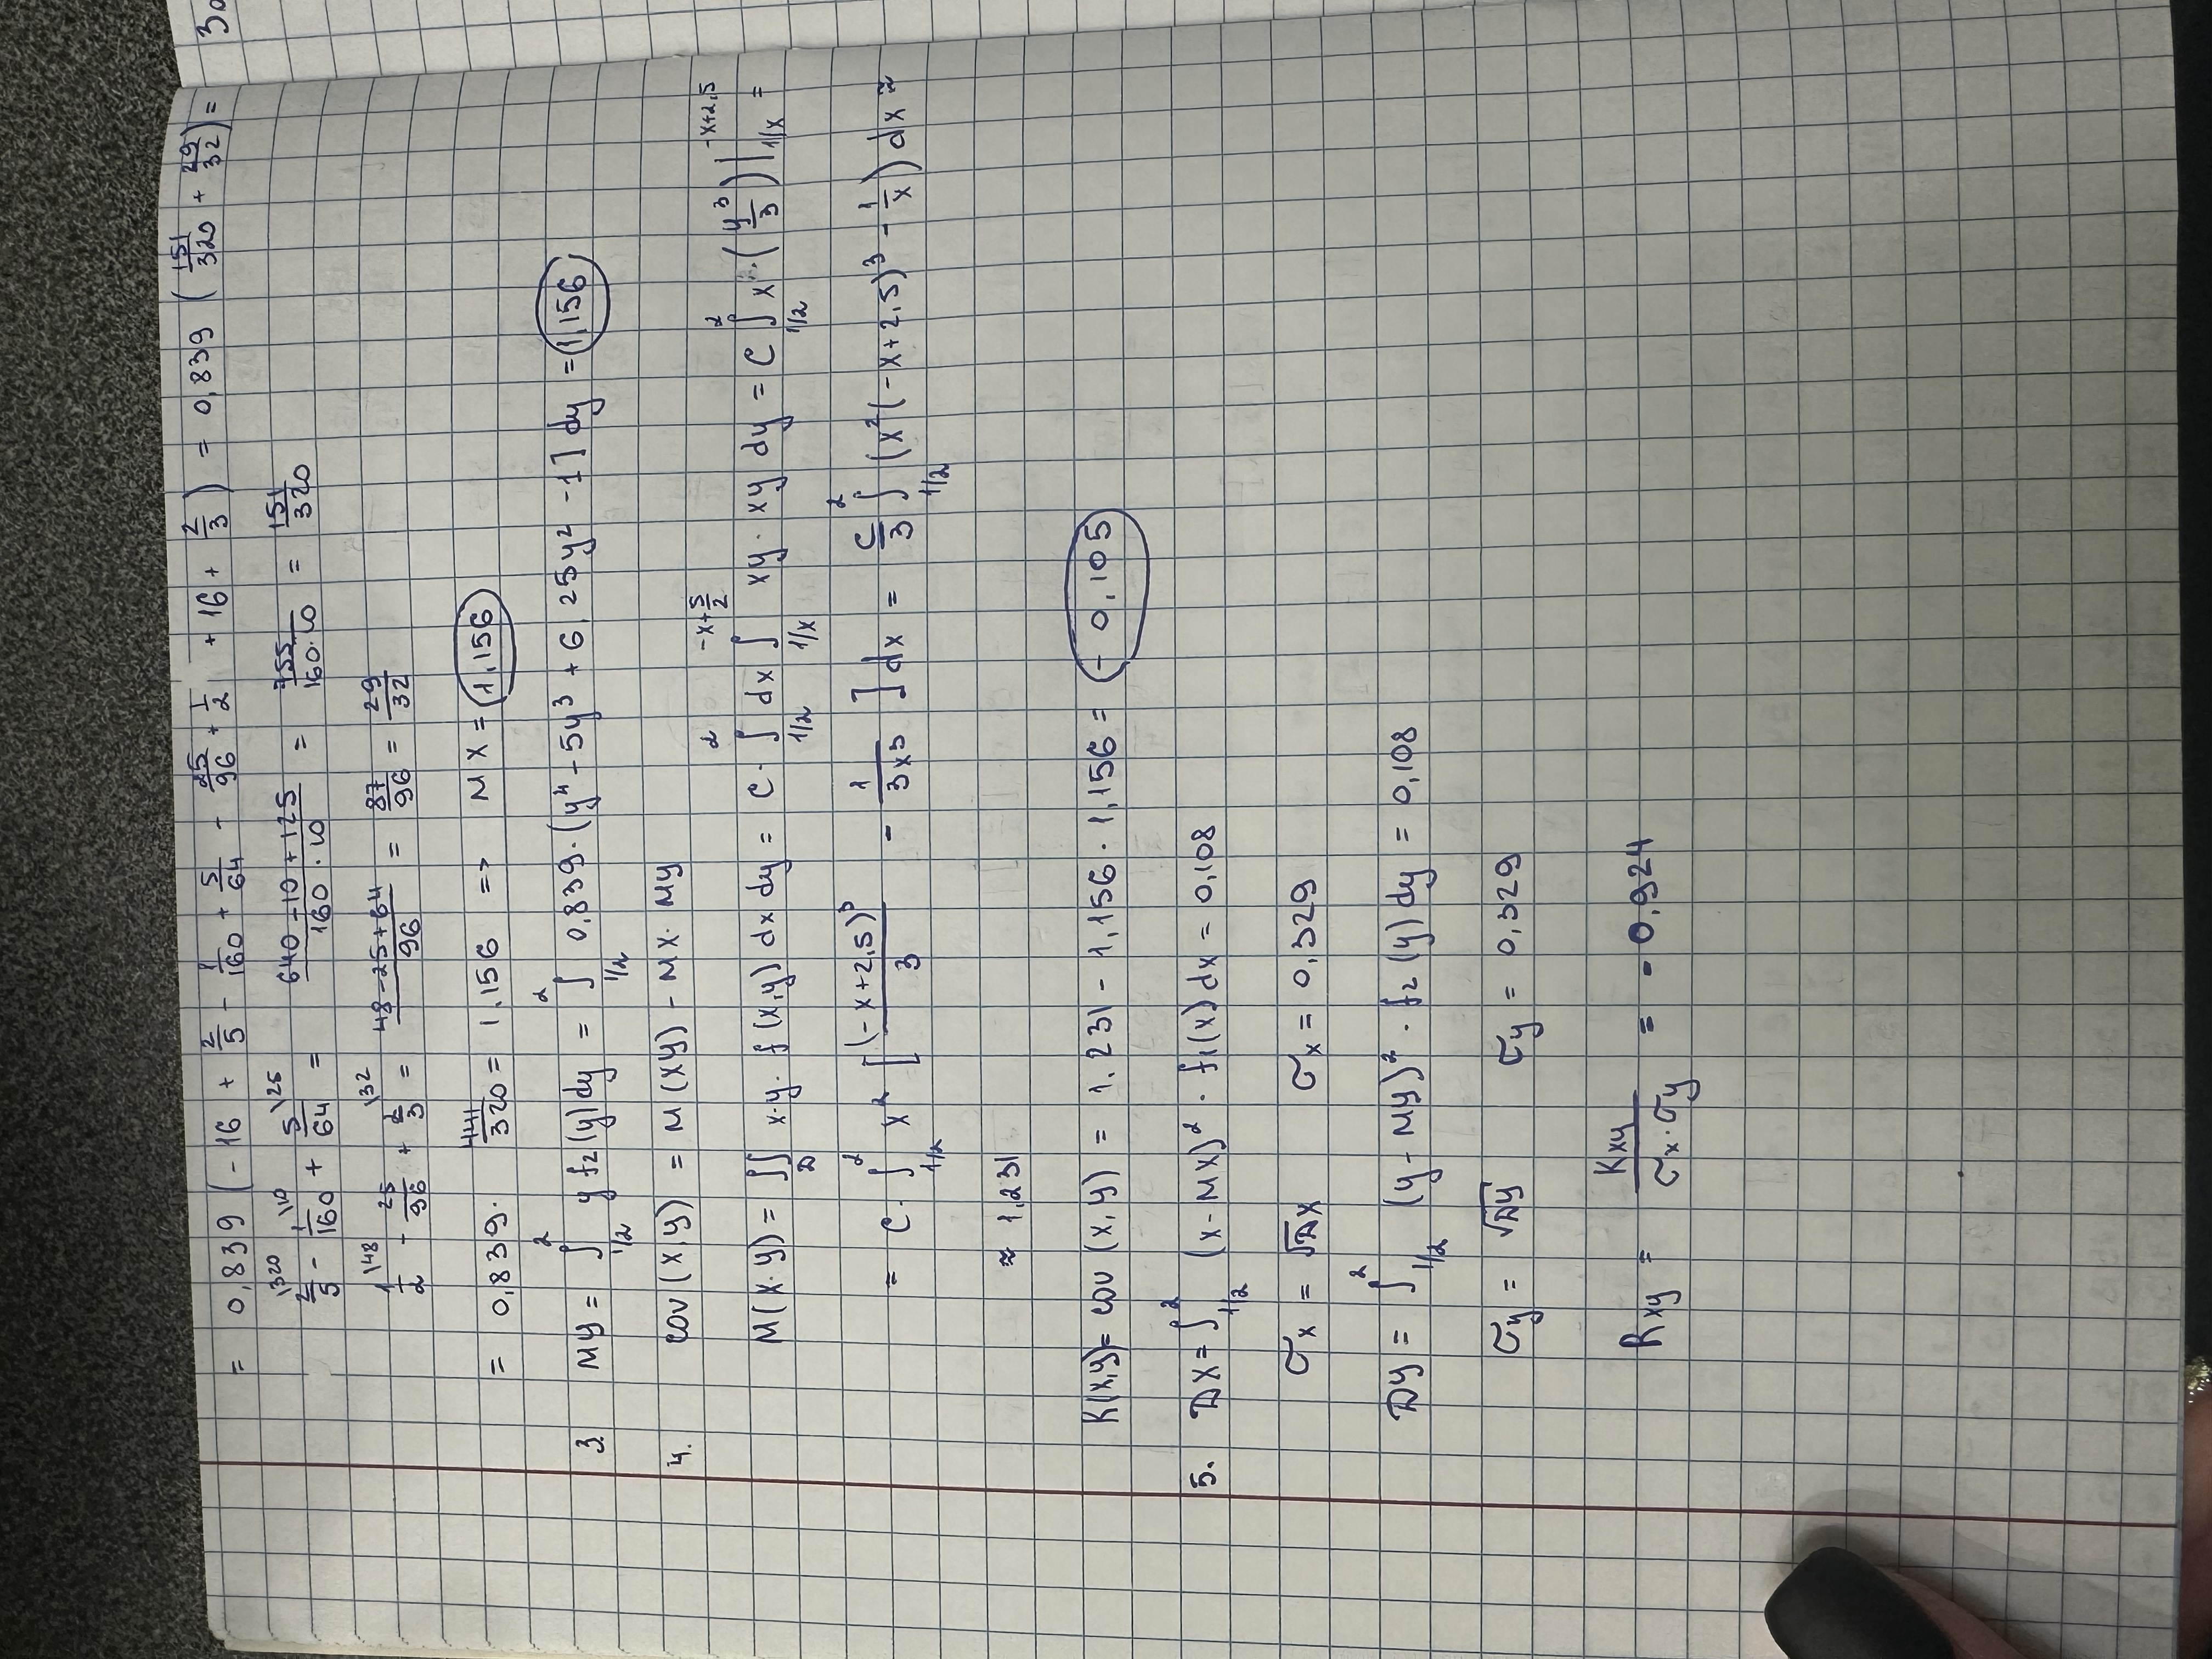 = 0,839 (- 16 + 2/5 - 1/160 + 5/64 - 25/96 + 1/2 + 16 + 2/3) = 0,839 (151/320 + 29/32) =
2/5 \320 - 1/160 \10 + 5/64 \25 = (640 - 10 + 125)/(160 · 10) = 755/(160·10) = 151/320
1/2 \48 - 25/96 + 2/3 \32 = (48 - 25 + 64)/96 = 87/96 = 29/32
= 0,839 · 441/320 = 1,156 => MX = 1,156
3. MY = ∫_{1/2}^{2} y f₂(y) dy = ∫_{1/2}^{2} 0,839 · (y⁴ - 5y³ + 6,25y² - 1] dy = 1,156
4. cov (x,y) = M(XY) - MX · MY
M(X·Y) = ∬_D x·y· f(x,y) dx dy = C · ∫_{1/2}^{2} dx ∫_{1/x}^{-x+5/2} xy · xy dy = C ∫_{1/2}^{2} x² · (y³/3) |_{1/x}^{-x+2,5} =
= C · ∫_{1/2}^{2} x² [(-x+2,5)³/3 - 1/3x³] dx = C/3 ∫_{1/2}^{2} (x²(-x+2,5)³ - 1/x) dx ≈
≈ 1,231
K(x,y) = cov (x,y) = 1.231 - 1,156 · 1,156 = - 0,105
5. DX = ∫_{1/2}^{2} (x - MX)² · f₁(x) dx = 0,108
σx = √DX σx = 0,329
DY = ∫_{1/2}^{2} (y - MY)² · f₂(y) dy = 0,108
σy = √DY σy = 0,329
Rxy = Kxy/(σx · σy) = - 0,924